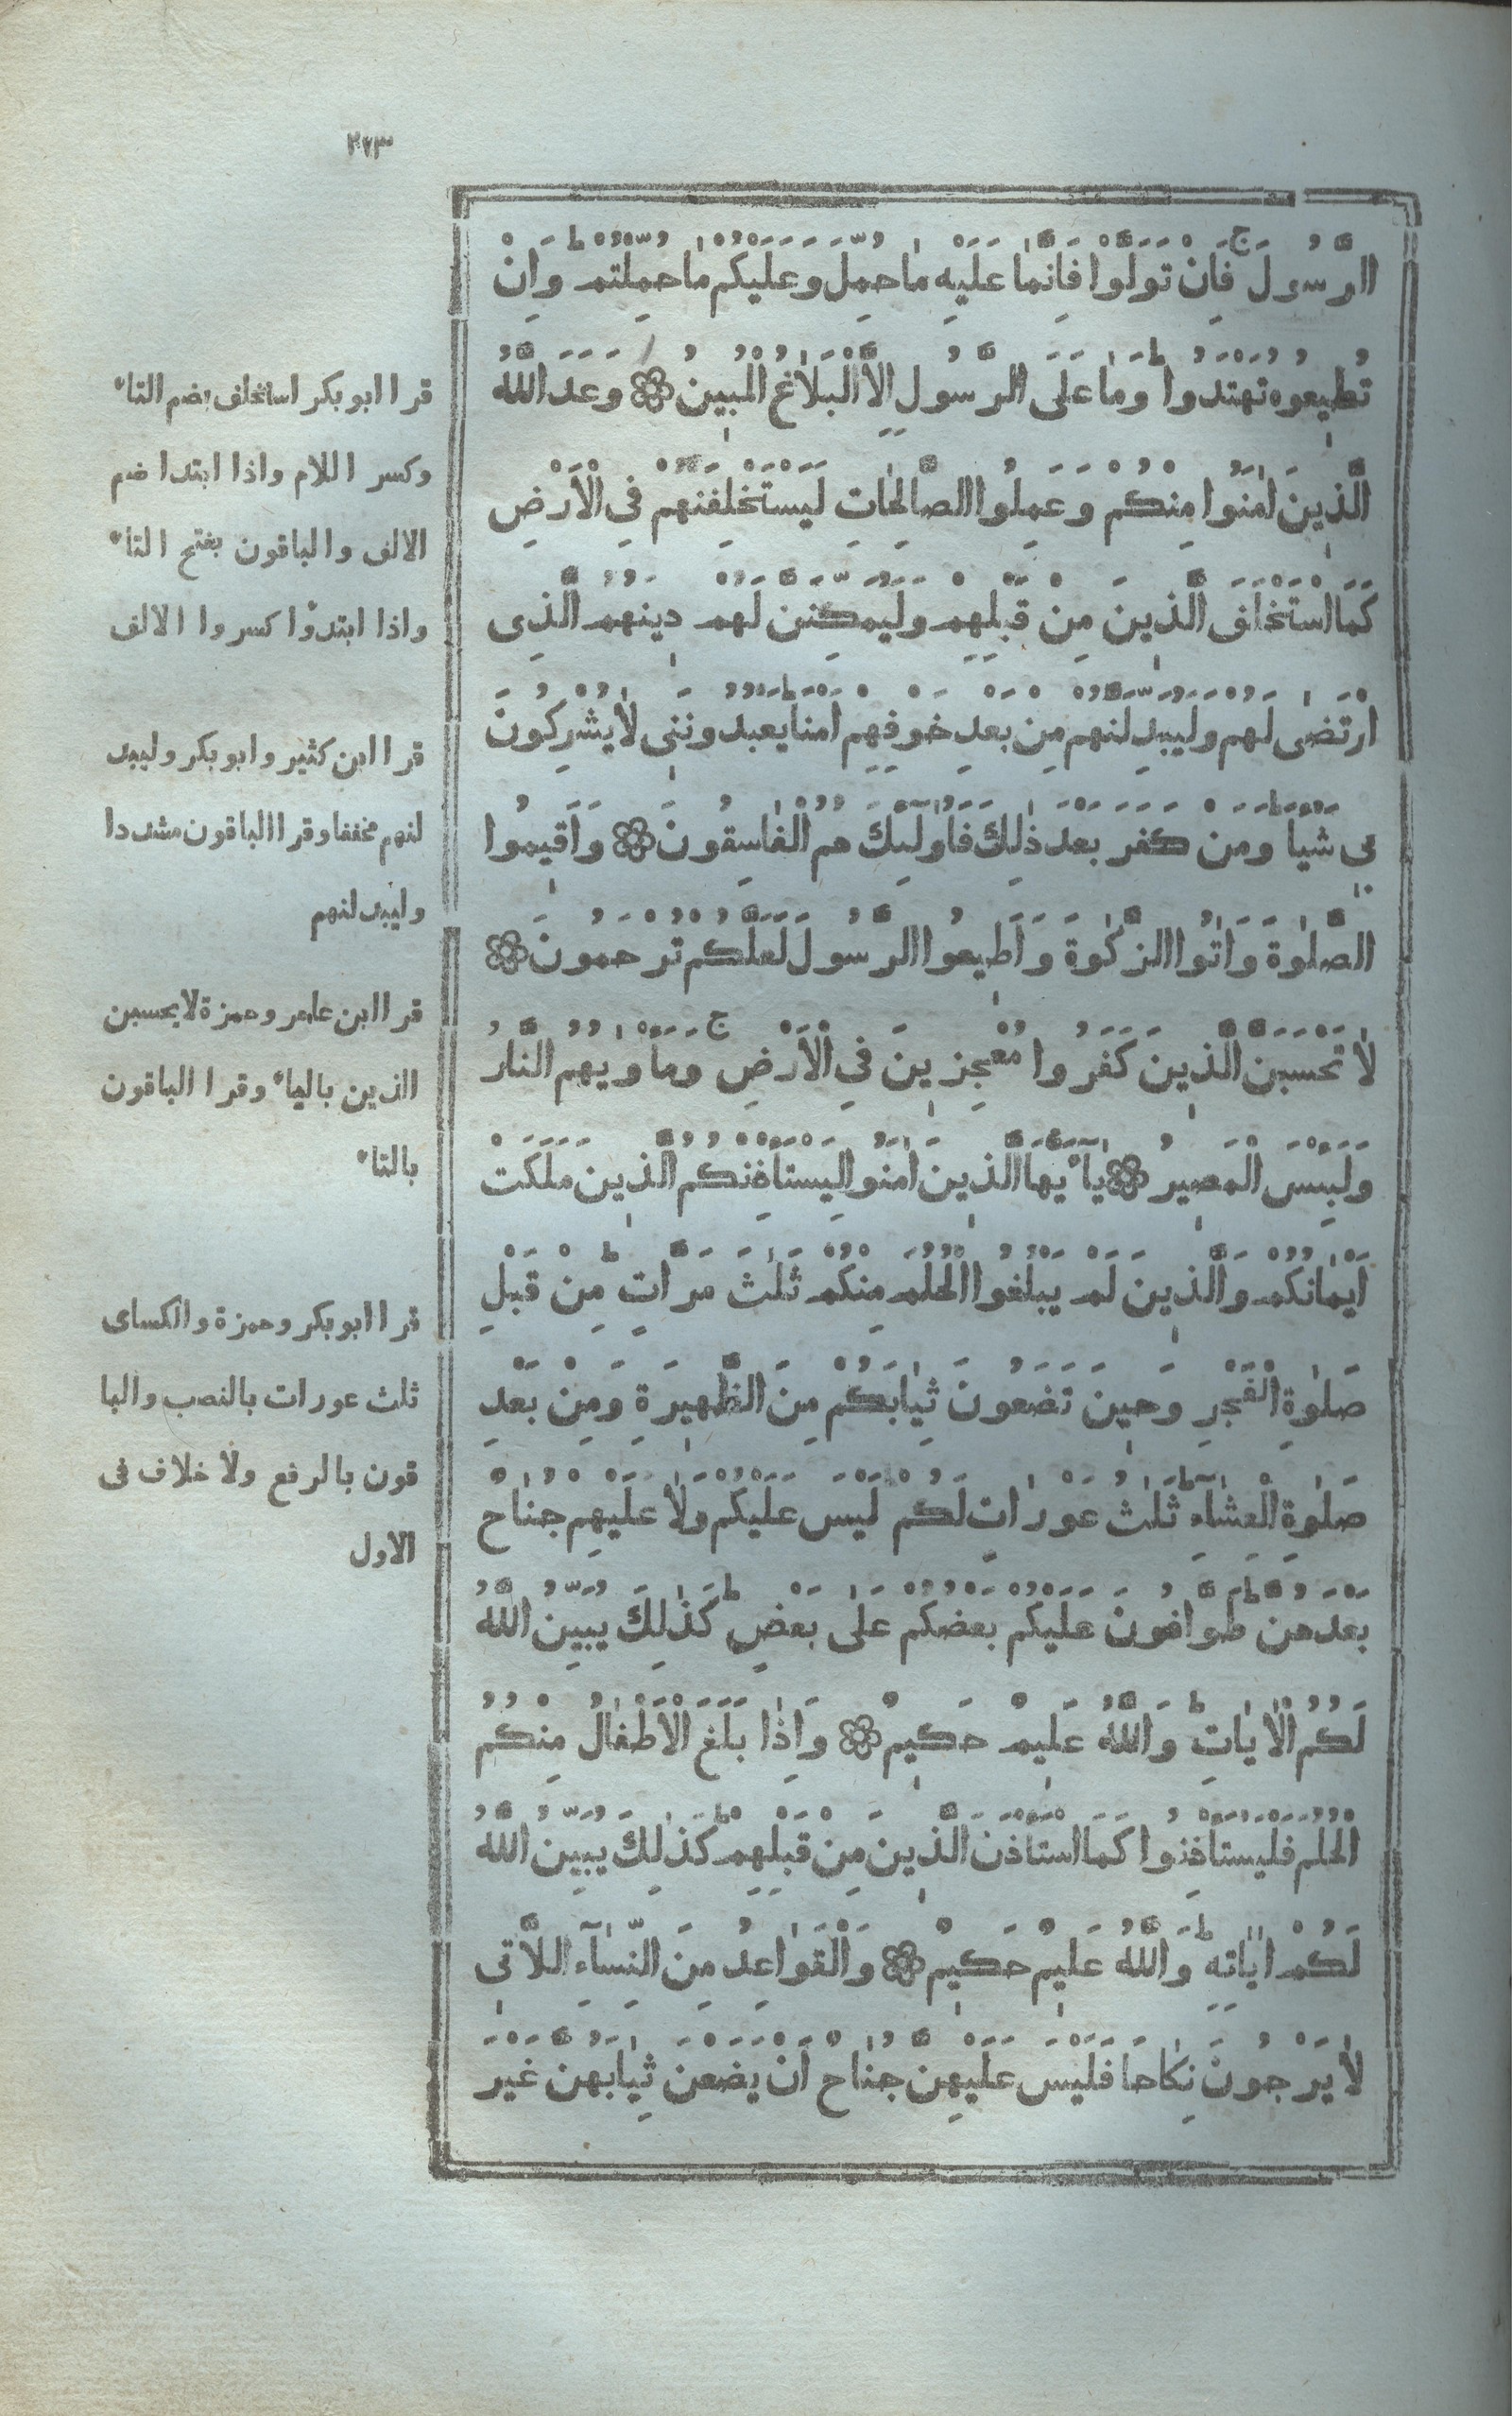 ٢٧٣
الرَّسُولَ ج فَاِنْ تَوَلَّوْا فَاِنَّمٰا عَلَيْهِ مٰا حُمِّلَ وَعَلَيْكُمْ مٰا حُمِّلْتُمْ ط وَاِنْ
تُطِيعُوهُ تَهْتَدُوا ط وَمٰا عَلَى الرَّسُولِ اِلَّا الْبَلٰاغُ الْمُبِينُ ۞ وَعَدَ اللّٰهُ
الَّذِينَ اٰمَنُوا مِنْكُمْ وَعَمِلُوا الصّٰالِحٰاتِ لَيَسْتَخْلِفَنَّهُمْ فِي الْاَرْضِ
كَمَا اسْتَخْلَفَ الَّذِينَ مِنْ قَبْلِهِمْ وَلَيُمَكِّنَنَّ لَهُمْ دِينَهُمُ الَّذِى
ارْتَضٰى لَهُمْ وَلَيُبَدِّلَنَّهُمْ مِنْ بَعْدِ خَوْفِهِمْ اَمْنًا ط يَعْبُدُونَنِى لٰا يُشْرِكُونَ
بِى شَيْئًا ط وَمَنْ كَفَرَ بَعْدَ ذٰلِكَ فَاُولٰٓئِكَ هُمُ الْفٰاسِقُونَ ۞ وَاَقِيمُوا
الصَّلٰوةَ وَاٰتُوا الزَّكٰوةَ وَاَطِيعُوا الرَّسُولَ لَعَلَّكُمْ تُرْحَمُونَ ۞
لٰا تَحْسَبَنَّ الَّذِينَ كَفَرُوا مُعْجِزِينَ فِي الْاَرْضِ ج وَمَأْوٰيهُمُ النَّارُ
وَلَبِئْسَ الْمَصِيرُ ۞ يٰٓاَيُّهَا الَّذِينَ اٰمَنُوا لِيَسْتَأْذِنْكُمُ الَّذِينَ مَلَكَتْ
اَيْمٰانُكُمْ وَالَّذِينَ لَمْ يَبْلُغُوا الْحُلُمَ مِنْكُمْ ثَلٰثَ مَرّٰاتٍ ط مِنْ قَبْلِ
صَلٰوةِ الْفَجْرِ وَحِينَ تَضَعُونَ ثِيٰابَكُمْ مِنَ الظَّهِيرَةِ وَمِنْ بَعْدِ
صَلٰوةِ الْعِشٰٓاءِ ط ثَلٰثُ عَوْرٰاتٍ لَكُمْ لَيْسَ عَلَيْكُمْ وَلٰا عَلَيْهِمْ جُنٰاحٌ
بَعْدَهُنَّ ط طَوَّافُونَ عَلَيْكُمْ بَعْضُكُمْ عَلٰى بَعْضٍ ط كَذٰلِكَ يُبَيِّنُ اللّٰهُ
لَكُمُ الْاٰيٰاتِ ط وَاللّٰهُ عَلِيمٌ حَكِيمٌ ۞ وَاِذٰا بَلَغَ الْاَطْفٰالُ مِنْكُمُ
الْحُلُمَ فَلْيَسْتَأْذِنُوا كَمَا اسْتَأْذَنَ الَّذِينَ مِنْ قَبْلِهِمْ ط كَذٰلِكَ يُبَيِّنُ اللّٰهُ
لَكُمْ اٰيٰاتِهِ ط وَاللّٰهُ عَلِيمٌ حَكِيمٌ ۞ وَالْقَوٰاعِدُ مِنَ النِّسٰٓاءِ اللَّاتِى
لٰا يَرْجُونَ نِكٰاحًا فَلَيْسَ عَلَيْهِنَّ جُنٰاحٌ اَنْ يَضَعْنَ ثِيٰابَهُنَّ غَيْرَ
قرا ابو بكر استخلف بضم التاء
وكسر اللام واذا ابتدا ضم
الالف والباقون بفتح التاء
واذا ابتدؤا كسروا الالف
قرا ابن كثير وابو بكر وليبد
لنهم مخففا وقرا الباقون مشددا
وليبدلنهم
قرا ابن عامر وحمزة لا يحسبن
الذين بالياء وقرا الباقون
بالتاء
قرا ابو بكر وحمزة والكساى
ثلث عورات بالنصب والبا
قون بالرفع ولا خلاف فى
الاول